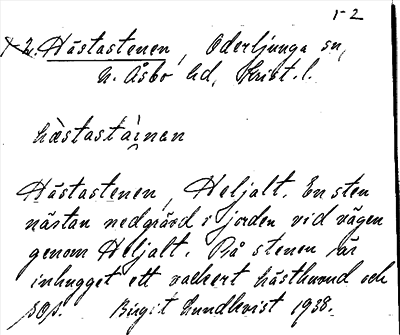 1-2
1-2. Hästastenen, Oderljunga sn,
N. Åsbo hd, Krist. l.
hästastainan
Hästastenen, Heljalt. En sten
nästan nedgrävd i jorden vid vägen
genom Heljalt. På stenen är
inhugget ett vackert hästhuvud och
Birgit Lundkvist 1938.